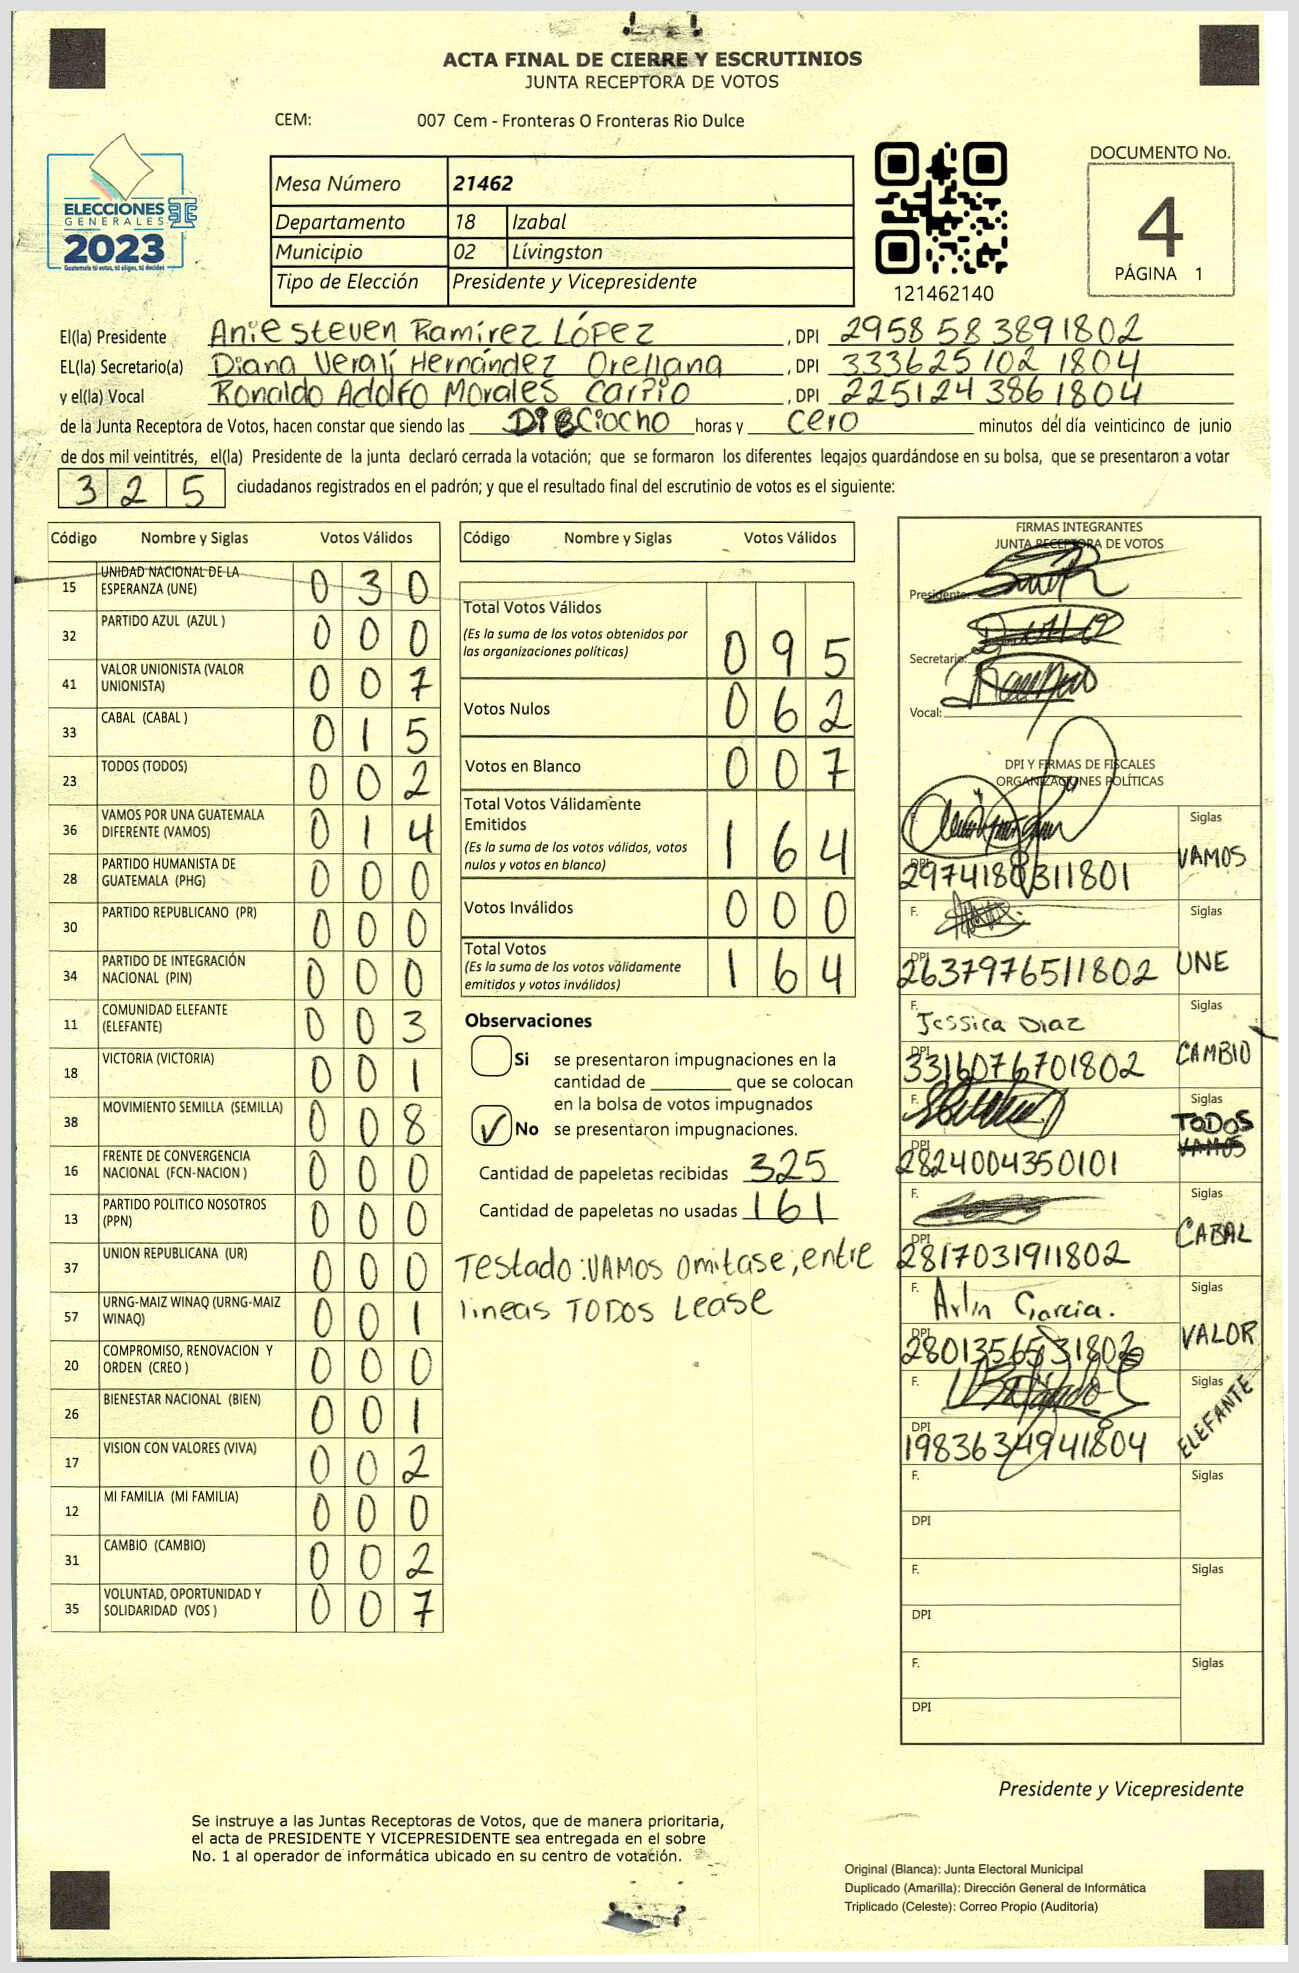 ACTA FINAL DE CIERRE Y ESCRUTINIOS
JUNTA RECEPTORA DE VOTOS
CEM: 007 Cem - Fronteras O Fronteras Rio Dulce
ELECCIONES
GENERALES
2023
Guatemala tú votas, tú eliges, tú decides
Mesa Número 21462
Departamento 18 Izabal
Municipio 02 Lívingston
Tipo de Elección Presidente y Vicepresidente
121462140
DOCUMENTO No.
4
PÁGINA 1
El(la) Presidente Aniesteven Ramírez López, DPI 2958583891802
EL(la) Secretario(a) Diana Veralí Hernández Orellana, DPI 3336251021804
y el(la) Vocal Ronaldo Adolfo Morales Carpio, DPI 2251243861804
de la Junta Receptora de Votos, hacen constar que siendo las Dieciocho horas y cero minutos del día veinticinco de junio
de dos mil veintitrés, el(la) Presidente de la junta declaró cerrada la votación; que se formaron los diferentes legajos guardándose en su bolsa, que se presentaron a votar
325 ciudadanos registrados en el padrón; y que el resultado final del escrutinio de votos es el siguiente:
Código Nombre y Siglas Votos Válidos
15 UNIDAD NACIONAL DE LA ESPERANZA (UNE) 030
32 PARTIDO AZUL (AZUL ) 000
41 VALOR UNIONISTA (VALOR UNIONISTA) 007
33 CABAL (CABAL ) 015
23 TODOS (TODOS) 002
36 VAMOS POR UNA GUATEMALA DIFERENTE (VAMOS) 014
28 PARTIDO HUMANISTA DE GUATEMALA (PHG) 000
30 PARTIDO REPUBLICANO (PR) 000
34 PARTIDO DE INTEGRACIÓN NACIONAL (PIN) 000
11 COMUNIDAD ELEFANTE (ELEFANTE) 003
18 VICTORIA (VICTORIA) 001
38 MOVIMIENTO SEMILLA (SEMILLA) 008
16 FRENTE DE CONVERGENCIA NACIONAL (FCN-NACION ) 000
13 PARTIDO POLITICO NOSOTROS (PPN) 000
37 UNION REPUBLICANA (UR) 000
57 URNG-MAIZ WINAQ (URNG-MAIZ WINAQ) 001
20 COMPROMISO, RENOVACION Y ORDEN (CREO ) 000
26 BIENESTAR NACIONAL (BIEN) 001
17 VISION CON VALORES (VIVA) 002
12 MI FAMILIA (MI FAMILIA) 000
31 CAMBIO (CAMBIO) 002
35 VOLUNTAD, OPORTUNIDAD Y SOLIDARIDAD (VOS ) 007
Código Nombre y Siglas Votos Válidos
Total Votos Válidos 095
(Es la suma de los votos obtenidos por
las organizaciones políticas)
Votos Nulos 062
Votos en Blanco 007
Total Votos Válidamente Emitidos 164
(Es la suma de los votos válidos, votos
nulos y votos en blanco)
Votos Inválidos 000
Total Votos 164
(Es la suma de los votos válidamente
emitidos y votos inválidos)
Observaciones
Si se presentaron impugnaciones en la
cantidad de ________ que se colocan
en la bolsa de votos impugnados
No se presentaron impugnaciones.
Cantidad de papeletas recibidas 325
Cantidad de papeletas no usadas 161
Testado: VAMOS omitase, entre
lineas TODOS Lease
FIRMAS INTEGRANTES
JUNTA RECEPTORA DE VOTOS
Presidente:
Secretario:
Vocal:
DPI Y FIRMAS DE FISCALES
ORGANIZACIONES POLÍTICAS
F. Siglas VAMOS
DPI 2974188311801
F. Siglas UNE
DPI 2637976511802
F. Jessica Diaz Siglas CAMBIO
DPI 3316076701802
F. Siglas TODOS VAMOS
DPI 2824004350101
F. Siglas CABAL
DPI 2817031911802
F. Arlin Garcia. Siglas VALOR
DPI 2801356531802
F. Siglas ELEFANTE
DPI 1983634941804
F. Siglas
DPI
F. Siglas
DPI
F. Siglas
DPI
Presidente y Vicepresidente
Se instruye a las Juntas Receptoras de Votos, que de manera prioritaria,
el acta de PRESIDENTE Y VICEPRESIDENTE sea entregada en el sobre
No. 1 al operador de informática ubicado en su centro de votación.
Original (Blanca): Junta Electoral Municipal
Duplicado (Amarilla): Dirección General de Informática
Triplicado (Celeste): Correo Propio (Auditoria)